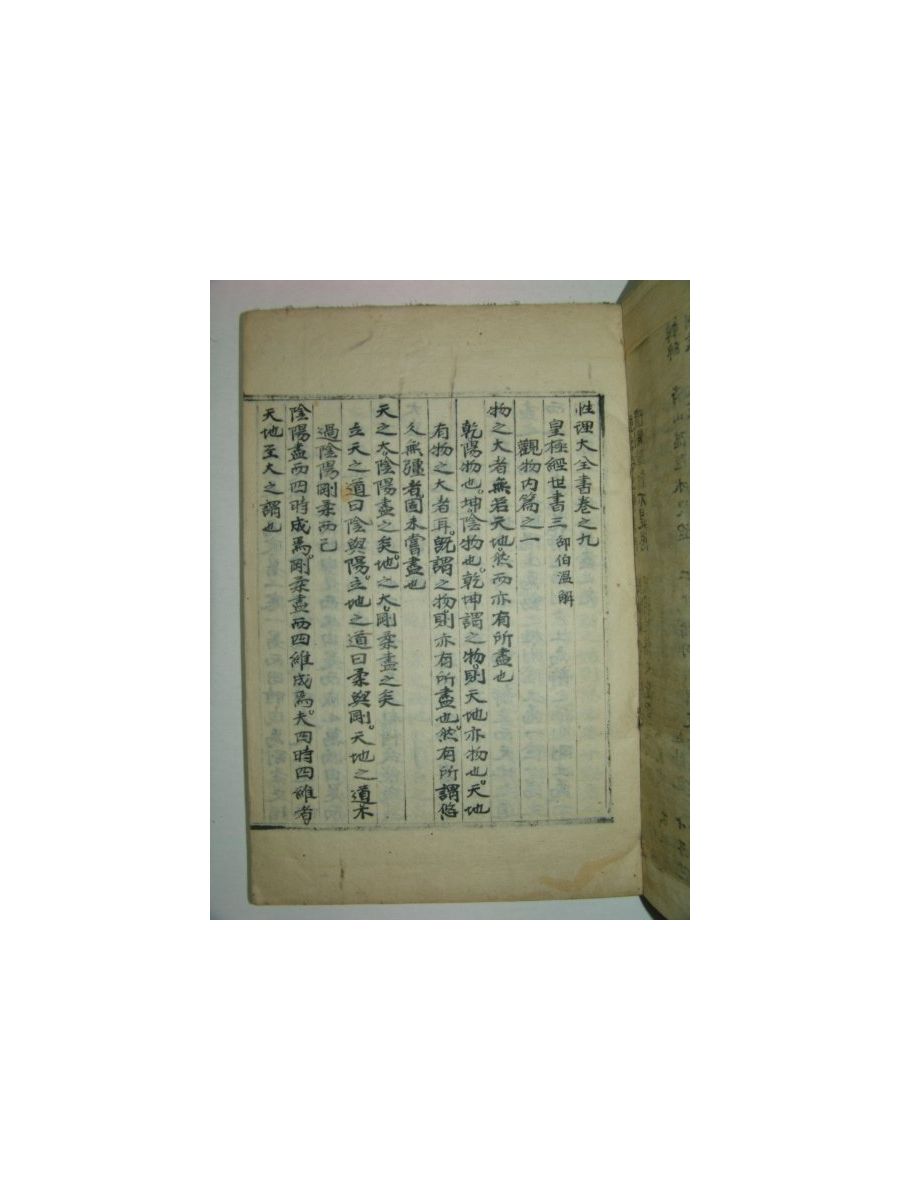 性理大全書卷之九
皇極經世書三 邵伯溫解
觀物內篇之一
物之大者無若天地。然而亦有所盡也
乾陽物也。坤陰物也。乾坤謂之物。則天地亦物也。天地
有物之大者耳。旣謂之物。則亦有所盡也。然有所謂悠
久無彊者固未嘗盡也
天之大陰陽盡之矣。地之大。剛柔盡之矣
立天之道曰陰與陽。立地之道曰柔與剛。天地之道不
過陰陽剛柔而已
陰陽盡而四時成焉。剛柔盡而四維成焉。夫四時四維者。
天地至大之謂也